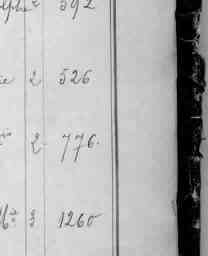 2 592
2 526
2 776.
3 1260